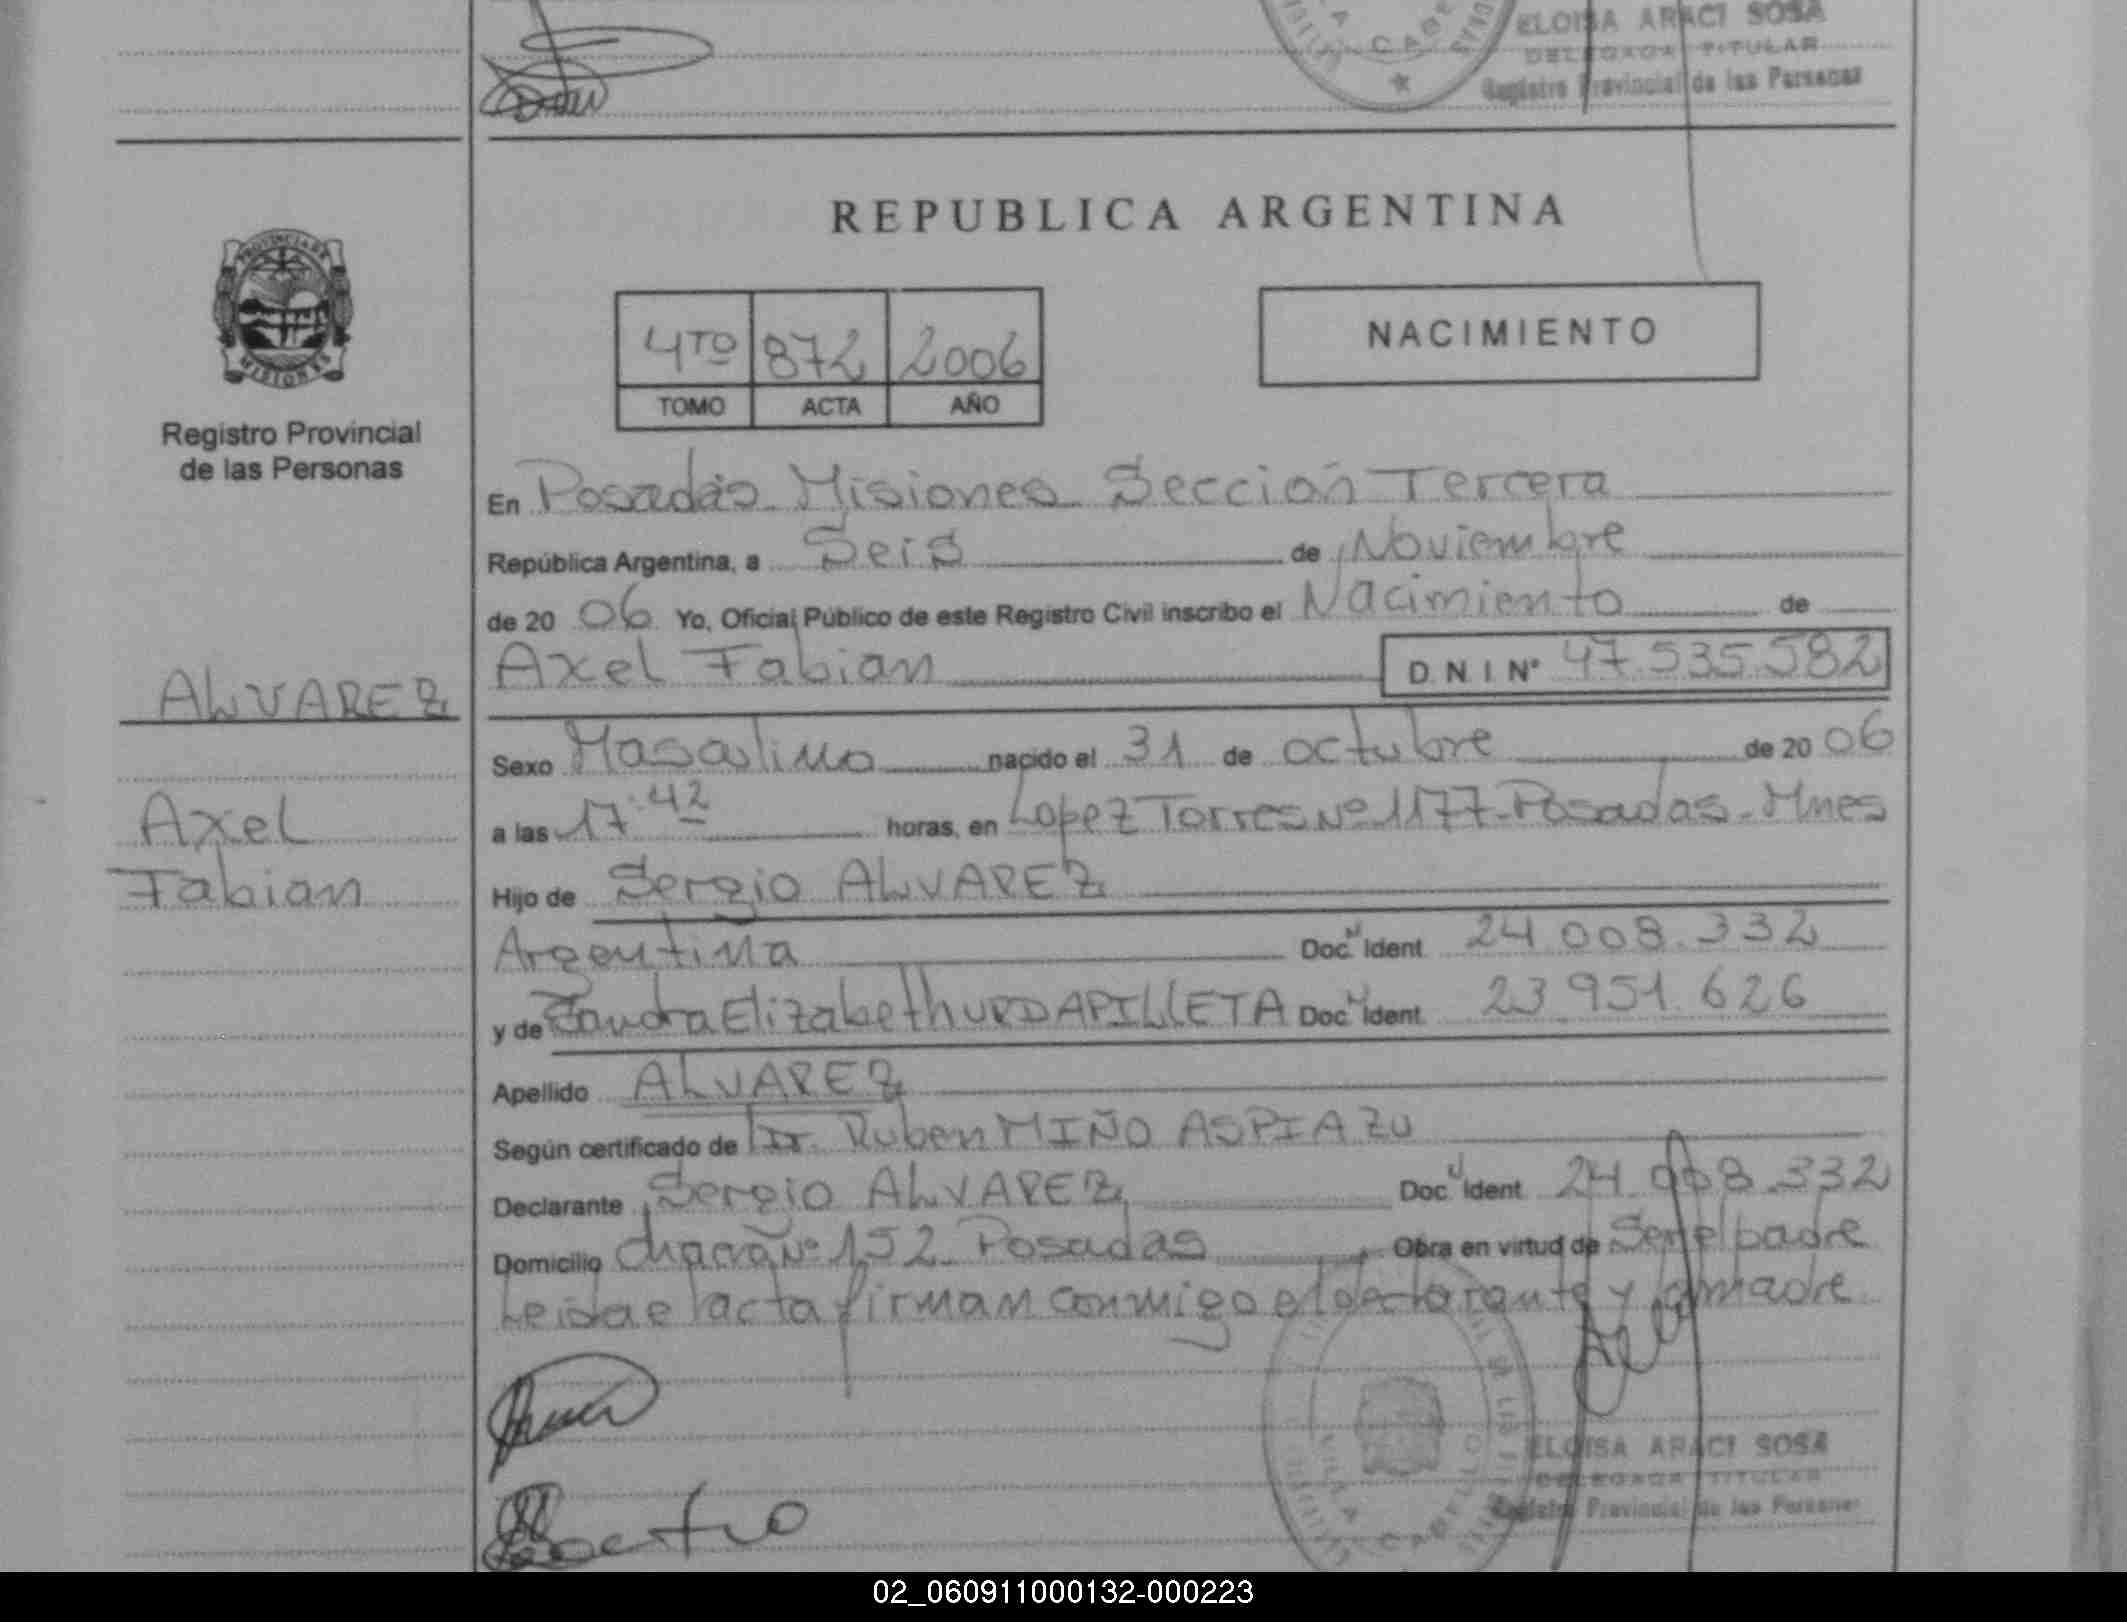 ELOISA ARACI SOSA
DELEGADA TITULAR
Registro Provincial de las Personas
REPUBLICA ARGENTINA
PROVINCIA DE
MISIONES
4TO 872 2006
TOMO ACTA AÑO
NACIMIENTO
Registro Provincial
de las Personas
En Posadas Misiones Sección Tercera
República Argentina, a Seis de Noviembre
de 20 06 Yo, Oficial Público de este Registro Civil inscribo el Nacimiento de
ALVAREZ
Axel Fabian D.N.I Nº 47.535.582
Sexo Masculino nacido el 31 de octubre de 20 06
Axel
Fabian
a las 17:42 horas, en Lopez Torres Nº 1177-Posadas-Mnes
Hijo de Sergio ALVAREZ
Argentina Doc Ident 24 008.332
y de Sandra Elizabeth URDAPILLETA Doc Ident 23 951.626
Apellido ALVAREZ
Según certificado de Dr. Ruben MIÑO ASPIAZU
Declarante Sergio ALVAREZ Doc Ident 24.008.332
Domicilio Nº 152 Posadas Obra en virtud de Ser el padre
Leida el acta firman conmigo el declarante y la madre
VILLA CABELLO
ELOISA ARACI SOSA
DELEGADA TITULAR
Registro Provincial de las Personas
02_060911000132-000223